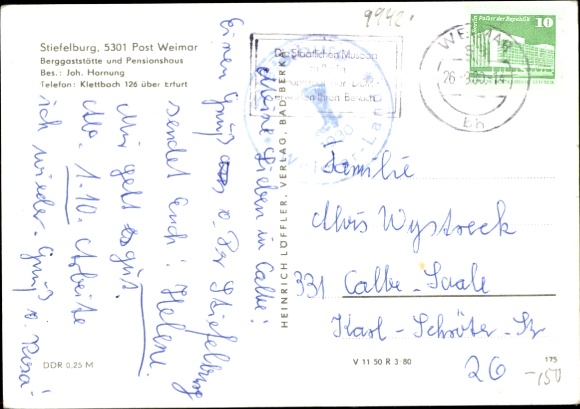 Stiefelburg, 5301 Post Weimar
Berggaststätte und Pensionshaus
Bes.: Joh. Hornung
Telefon: Klettbach 126 über Erfurt
Meine Lieben in Calbe!
Einen Gruß v. Der Stiefelburg
sendet Euch: Helene.
Mir geht es gut.
Ab. 1.10. Arbeite
ich wieder. Gruß v. Rosa!
DDR 0,25 M
HEINRICH LÖFFLER, VERLAG, BAD BERKA
9942
Die Staatlichen Museen
Ihren Besuch
WEIMAR
bh
Palast der Republik
10
Familie
Alvis Wystreck
331 Calbe-Saale
Karl-Schröter-Str
26
V 11 50 R 3 80
175
-150